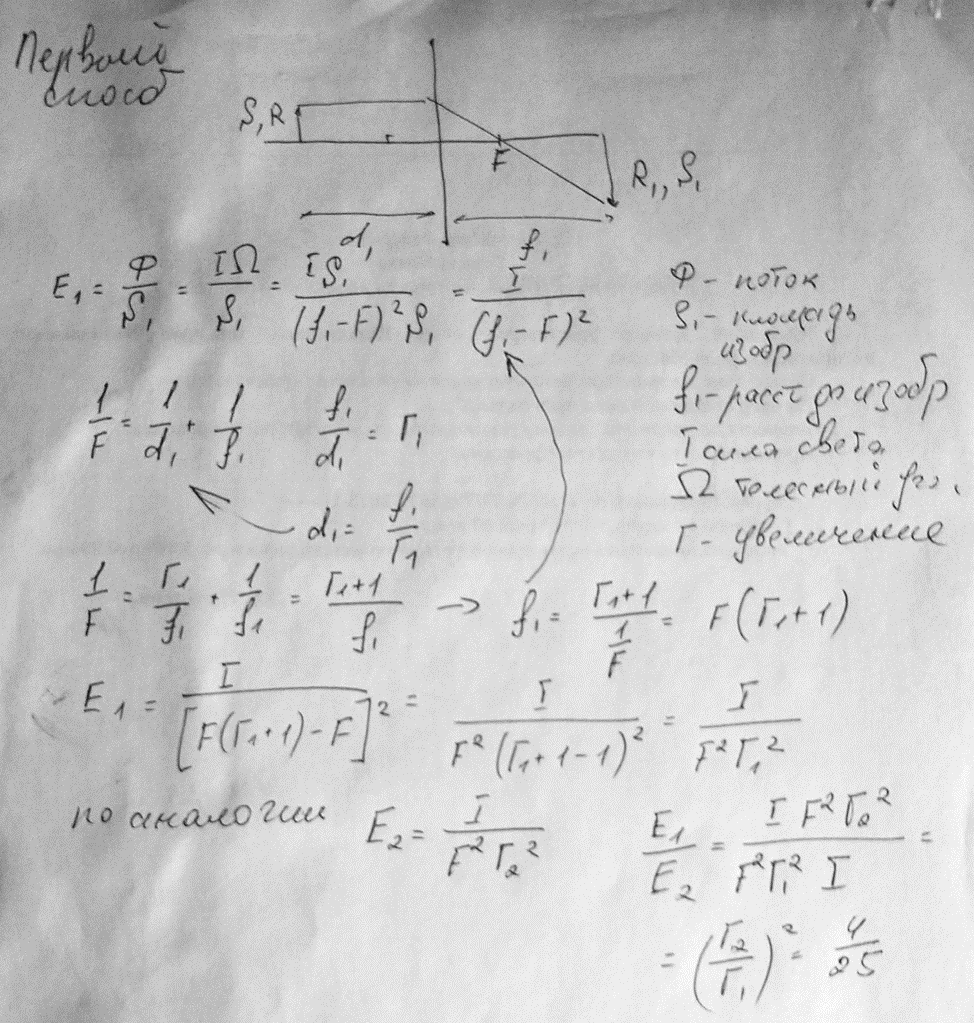 Первый
способ
S, R
F
R₁, S₁
d₁
f₁
E₁ = Φ/S₁ = IΩ/S₁ = IS₁/((f₁-F)² S₁) = I/(f₁-F)²
Φ - поток
S₁ - площадь
изобр
f₁ - расст до изобр
I сила света
Ω телесный уг.
Г - увеличение
1/F = 1/d₁ + 1/f₁ f₁/d₁ = Г₁
d₁ = f₁/Г₁
1/F = Г₁/f₁ + 1/f₁ = (Г₁+1)/f₁ → f₁ = (Г₁+1)/(1/F) = F(Г₁+1)
E₁ = I/[F(Г₁+1)-F]² = I/(F²(Г₁+1-1)²) = I/(F²Г₁²)
по аналогии E₂ = I/(F²Г₂²) E₁/E₂ = (I F²Г₂²)/(F²Г₁² I) =
= (Г₂/Г₁)² = 4/25